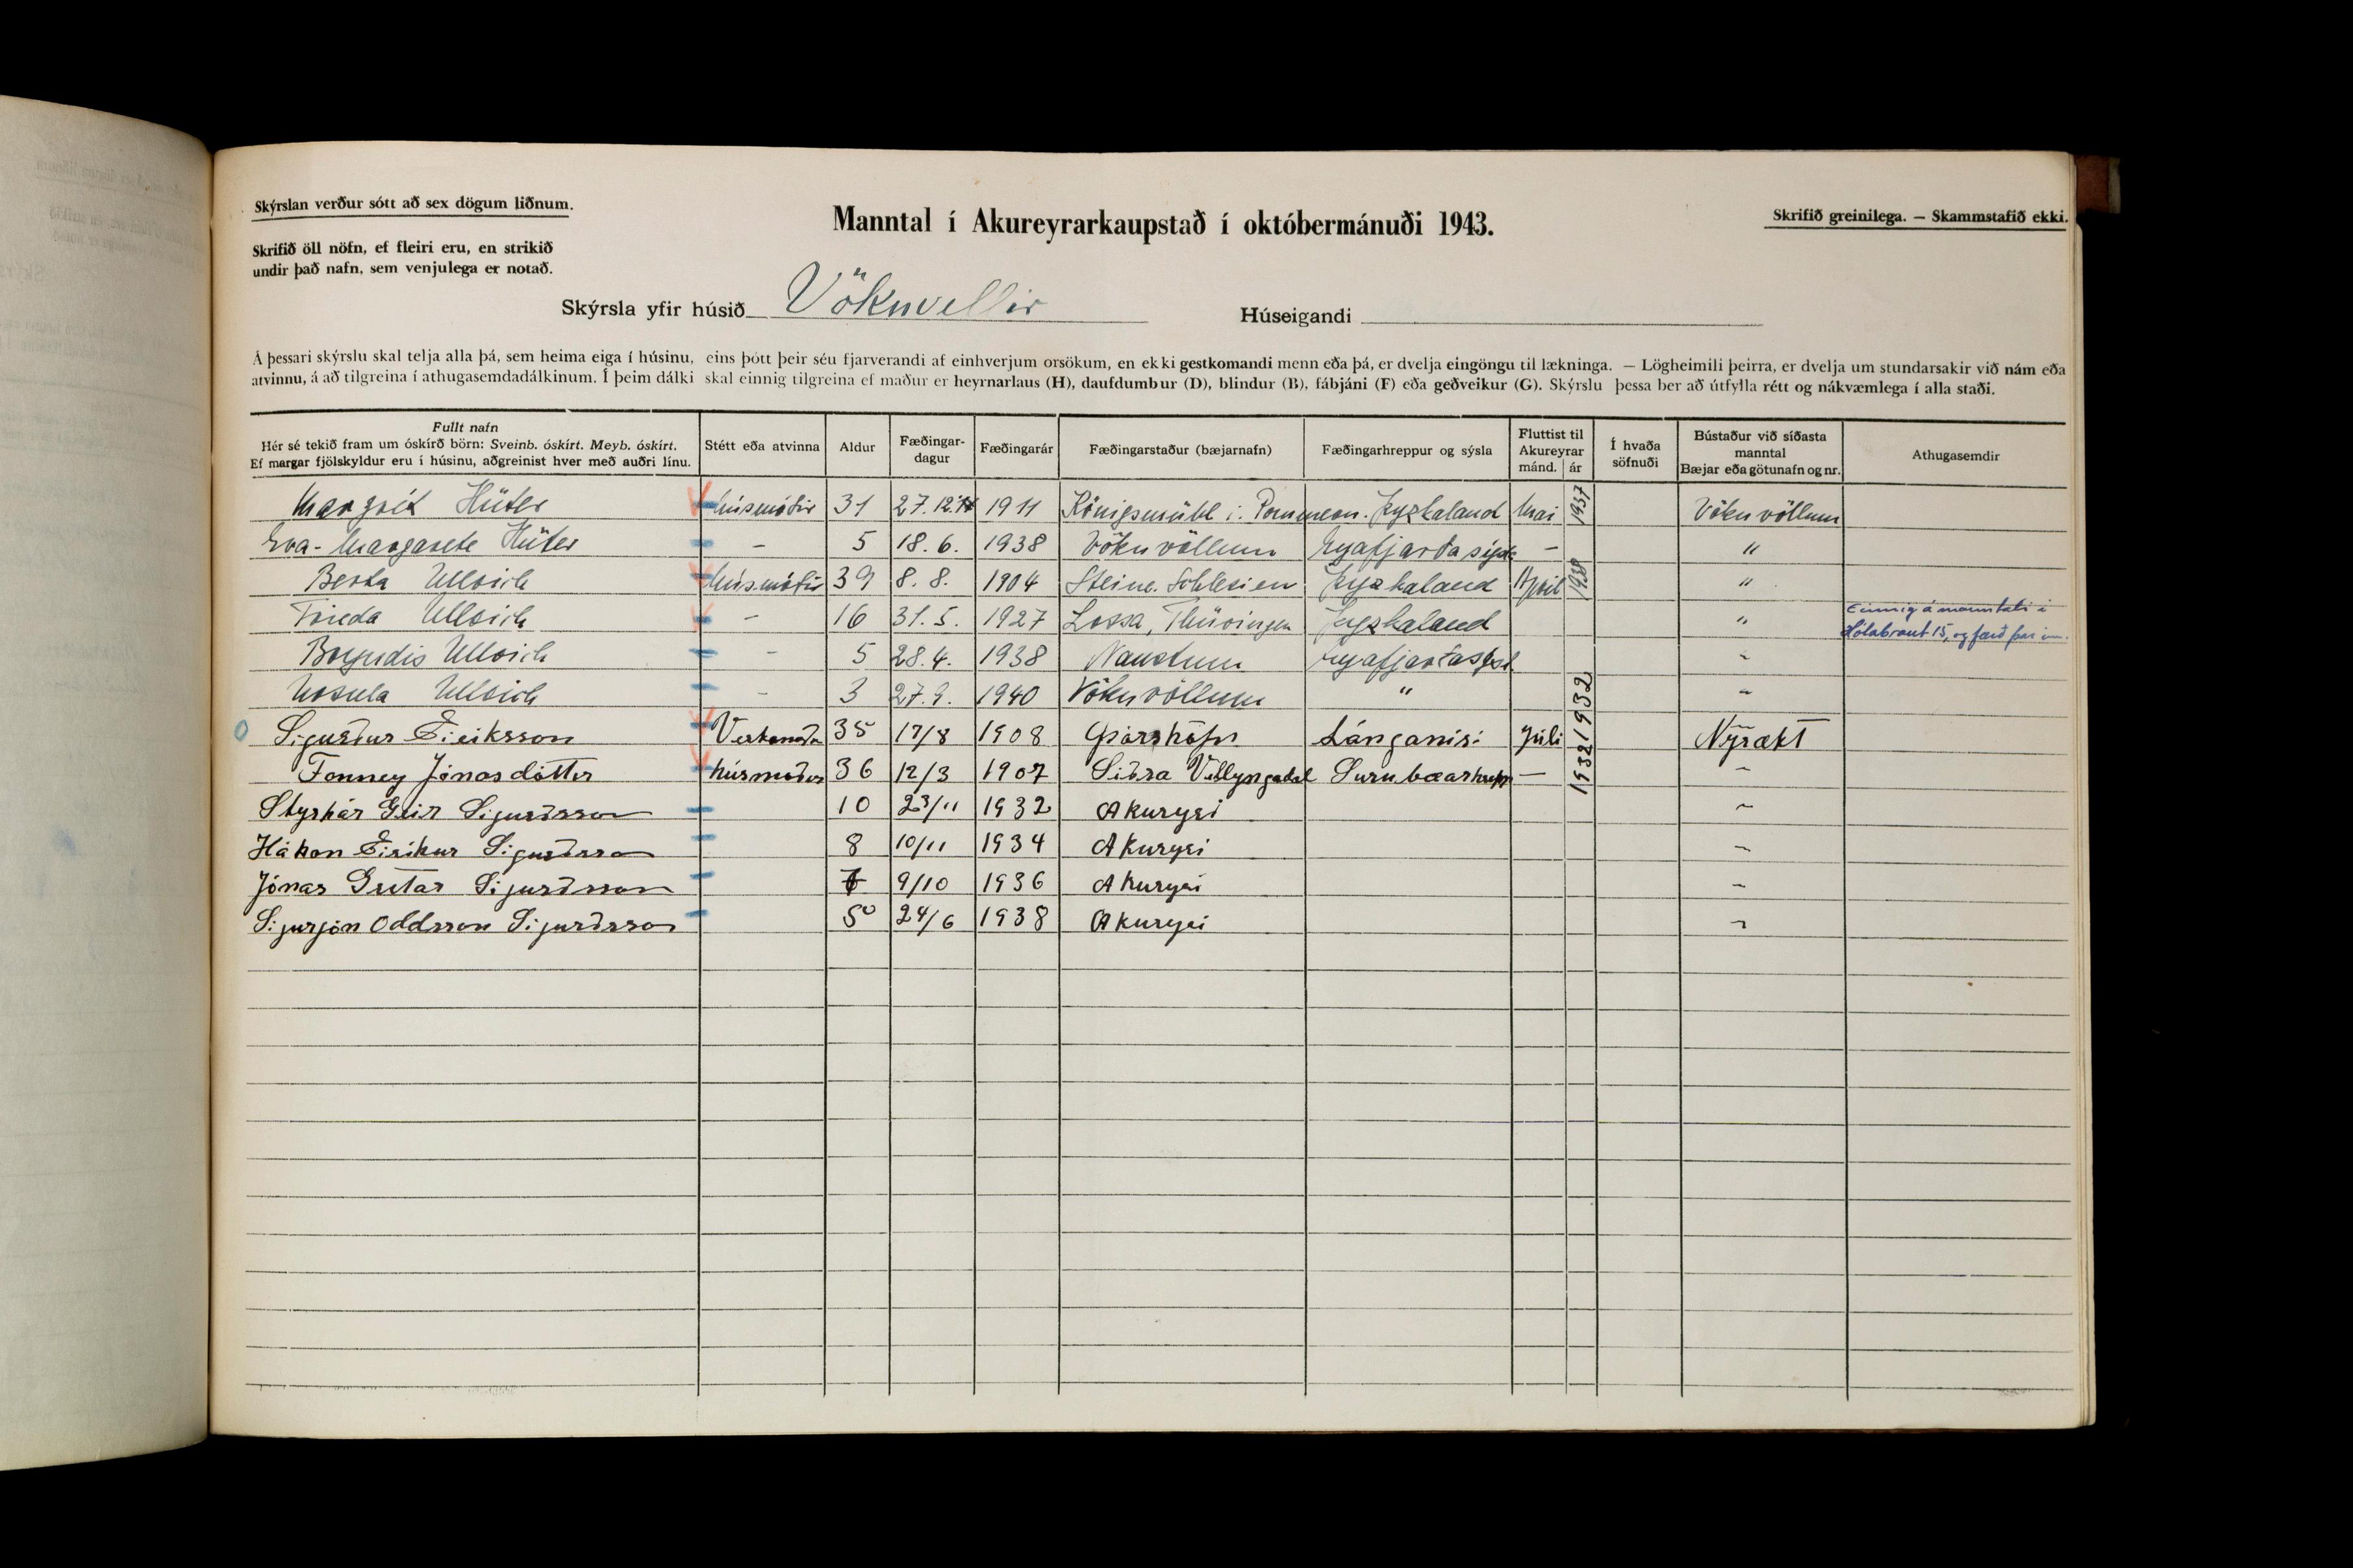 Skýrslan verður sótt að sex dögum liðnum.
Manntal í Akureyrarkaupstað í októbermánuði 1943.
Skrifið greinilega. — Skammstafið ekki.
Skrifið öll nöfn, ef fleiri eru, en strikið
undir það nafn, sem venjulega er notað.
Skýrsla yfir húsið Vökuvellir Húseigandi
Á þessari skýrslu skal telja alla þá, sem heima eiga í húsinu, eins þótt þeir séu fjarverandi af einhverjum orsökum, en ekki gestkomandi menn eða þá, er dvelja eingöngu til lækninga. — Lögheimili þeirra, er dvelja um stundarsakir við nám eða
atvinnu, á að tilgreina í athugasemdadálkinum. Í þeim dálki skal einnig tilgreina ef maður er heyrnarlaus (H), daufdumbur (D), blindur (B), fábjáni (F) eða geðveikur (G). Skýrslu þessa ber að útfylla rétt og nákvæmlega í alla staði.
Fullt nafn
Hér sé tekið fram um óskírð börn: Sveinb. óskírt. Meyb. óskírt.
Ef margar fjölskyldur eru í húsinu, aðgreinist hver með auðri línu.
Stétt eða atvinna
Aldur
Fæðingar-
dagur
Fæðingarár
Fæðingarstaður (bæjarnafn)
Fæðingarhreppur og sýsla
Fluttist til
Akureyrar
mánd. ár
Í hvaða
söfnuði
Bústaður við síðasta
manntal
Bæjar eða götunafn og nr.
Athugasemdir
Margrét Hüter húsmóðir 31 27.12. 1911 Königsmühl i. Pommern. Þyzkaland Mai 1937 Vökuvöllum
Eva-Margarete Hüter - 5 18.6. 1938 Vökuvöllum Eyafjarðasýsla - "
Berta Ullrich húsmóðir 39 8.8. 1904 Steine. Schlesien Þyzkaland Apríl 1938 "
Frieda Ullrich - 16 31.5. 1927 Lossa, Thüringen Þyzkaland " Einnig á manntali í
Hólabraut 15, og færð þar inn.
Bergdis Ullrich - 5 28.4. 1938 Naustum "
Ursula Ullrich - 3 27.9. 1940 Vökuvöllum " "
Sigurður Eiríksson 35 17/8 1908 Þórshöfn Lánganisi Júli 1932 Nýrækt
Fanney Jónasdóttir húsmóðir 36 12/3 1907 - 1932 "
Styrkár Geir Sigurðsson 10 23/11 1932 Akuryri "
Hákon Eiríkur Sigurðsson 8 10/11 1934 Akuryri "
Jónas Gretar Sigurðsson 9/10 1936 Akuryri "
Sigurjón Oddsson Sigurðsson 5 24/6 1938 Akuryri "